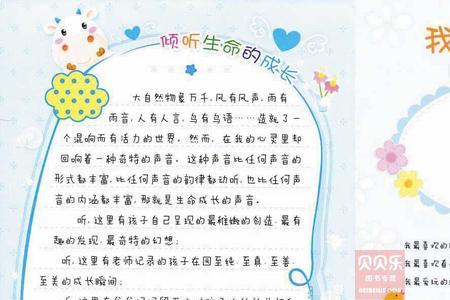 倾听生命的成长
大自然物景万千,风有风声,雨有
雨音,人有人言,鸟有鸟语……造就了一
个混响而有活力的世界。然而,在我的心灵里却
回响着一种奇特的声音。这种声音比任何声音的
形式都丰富,比任何声音的韵律都动听,也比任何声音
的内涵都丰富,那就是生命成长的声音。
听,这里有孩子自己呈现的最稚嫩的创造、最有
趣的发现、最奇特的幻想;
听,这里有老师记录的孩子在园至纯、至真、至善、
至美的成长瞬间;
我
我最喜欢的
我最喜
我最爱玩的
贝贝乐
图书专营